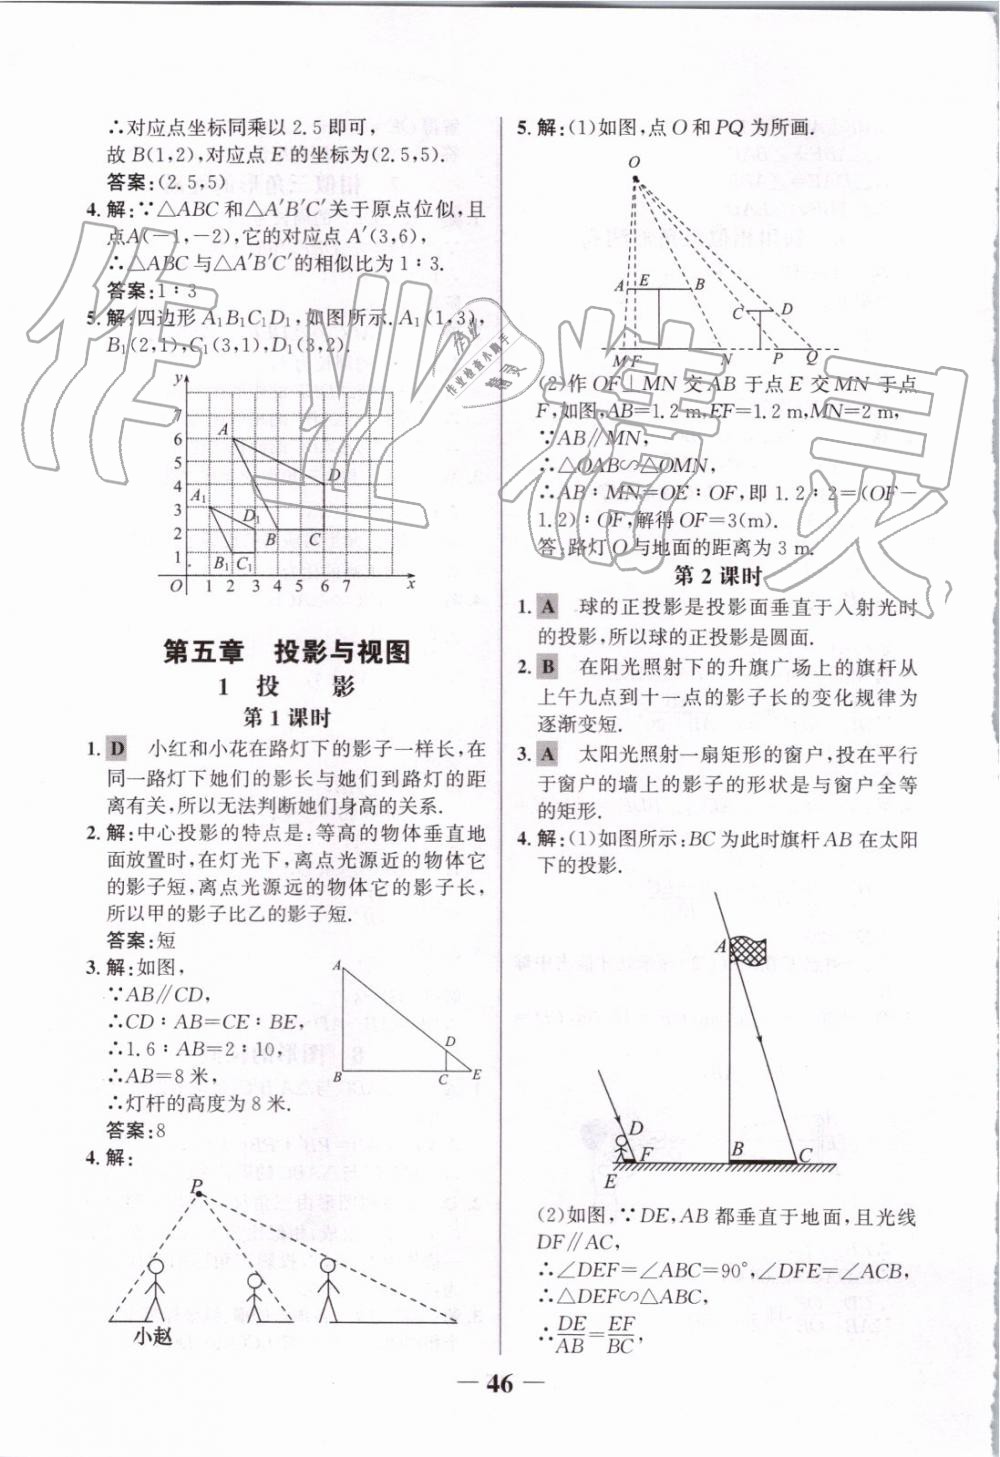 ∴对应点坐标同乘以 2.5 即可,
故 B(1,2),对应点 E 的坐标为(2.5,5).
答案:(2.5,5)
4. 解:∵△ABC 和△A′B′C′关于原点位似,且
点A(-1,-2),它的对应点 A′(3,6),
∴△ABC 与△A′B′C′的相似比为 1∶3.
答案:1∶3
5. 解:四边形 A₁B₁C₁D₁,如图所示. A₁(1,3),
B₁(2,1),C₁(3,1),D₁(3,2).
y
7
6
5
4
3
2
1
A
D
A₁
D₁
B
C
B₁
C₁
O 1 2 3 4 5 6 7 x
第五章 投影与视图
1 投 影
第 1 课时
1. D 小红和小花在路灯下的影子一样长,在
同一路灯下她们的影长与她们到路灯的距
离有关,所以无法判断她们身高的关系.
2. 解:中心投影的特点是:等高的物体垂直地
面放置时,在灯光下,离点光源近的物体它
的影子短,离点光源远的物体它的影子长,
所以甲的影子比乙的影子短.
答案:短
3. 解:如图,
∵AB∥CD,
∴CD∶AB=CE∶BE,
∴1.6∶AB=2∶10,
∴AB=8 米,
∴灯杆的高度为 8 米.
答案:8
A
D
B
C
E
4. 解:
P
小赵
5. 解:(1)如图,点 O 和 PQ 为所画.
O
A
E
B
C
D
M
F
N
P
Q
(2)作 OF⊥MN 交 AB 于点 E 交 MN 于点
F,如图,AB=1.2 m,EF=1.2 m,MN=2 m,
∵AB∥MN,
∴△OAB∽△OMN,
∴AB∶MN=OE∶OF,即 1.2∶2=(OF-
1.2)∶OF,解得 OF=3(m).
答:路灯 O 与地面的距离为 3 m.
第 2 课时
1. A 球的正投影是投影面垂直于入射光时
的投影,所以球的正投影是圆面.
2. B 在阳光照射下的升旗广场上的旗杆从
上午九点到十一点的影子长的变化规律为
逐渐变短.
3. A 太阳光照射一扇矩形的窗户,投在平行
于窗户的墙上的影子的形状是与窗户全等
的矩形.
4. 解:(1)如图所示:BC 为此时旗杆 AB 在太阳
下的投影.
A
D
B
C
F
E
(2)如图,∵DE,AB 都垂直于地面,且光线
DF∥AC,
∴∠DEF=∠ABC=90°,∠DFE=∠ACB,
∴△DEF∽△ABC,
∴DE/AB=EF/BC,
— 46 —
作业精灵
作业检查小助手
精灵